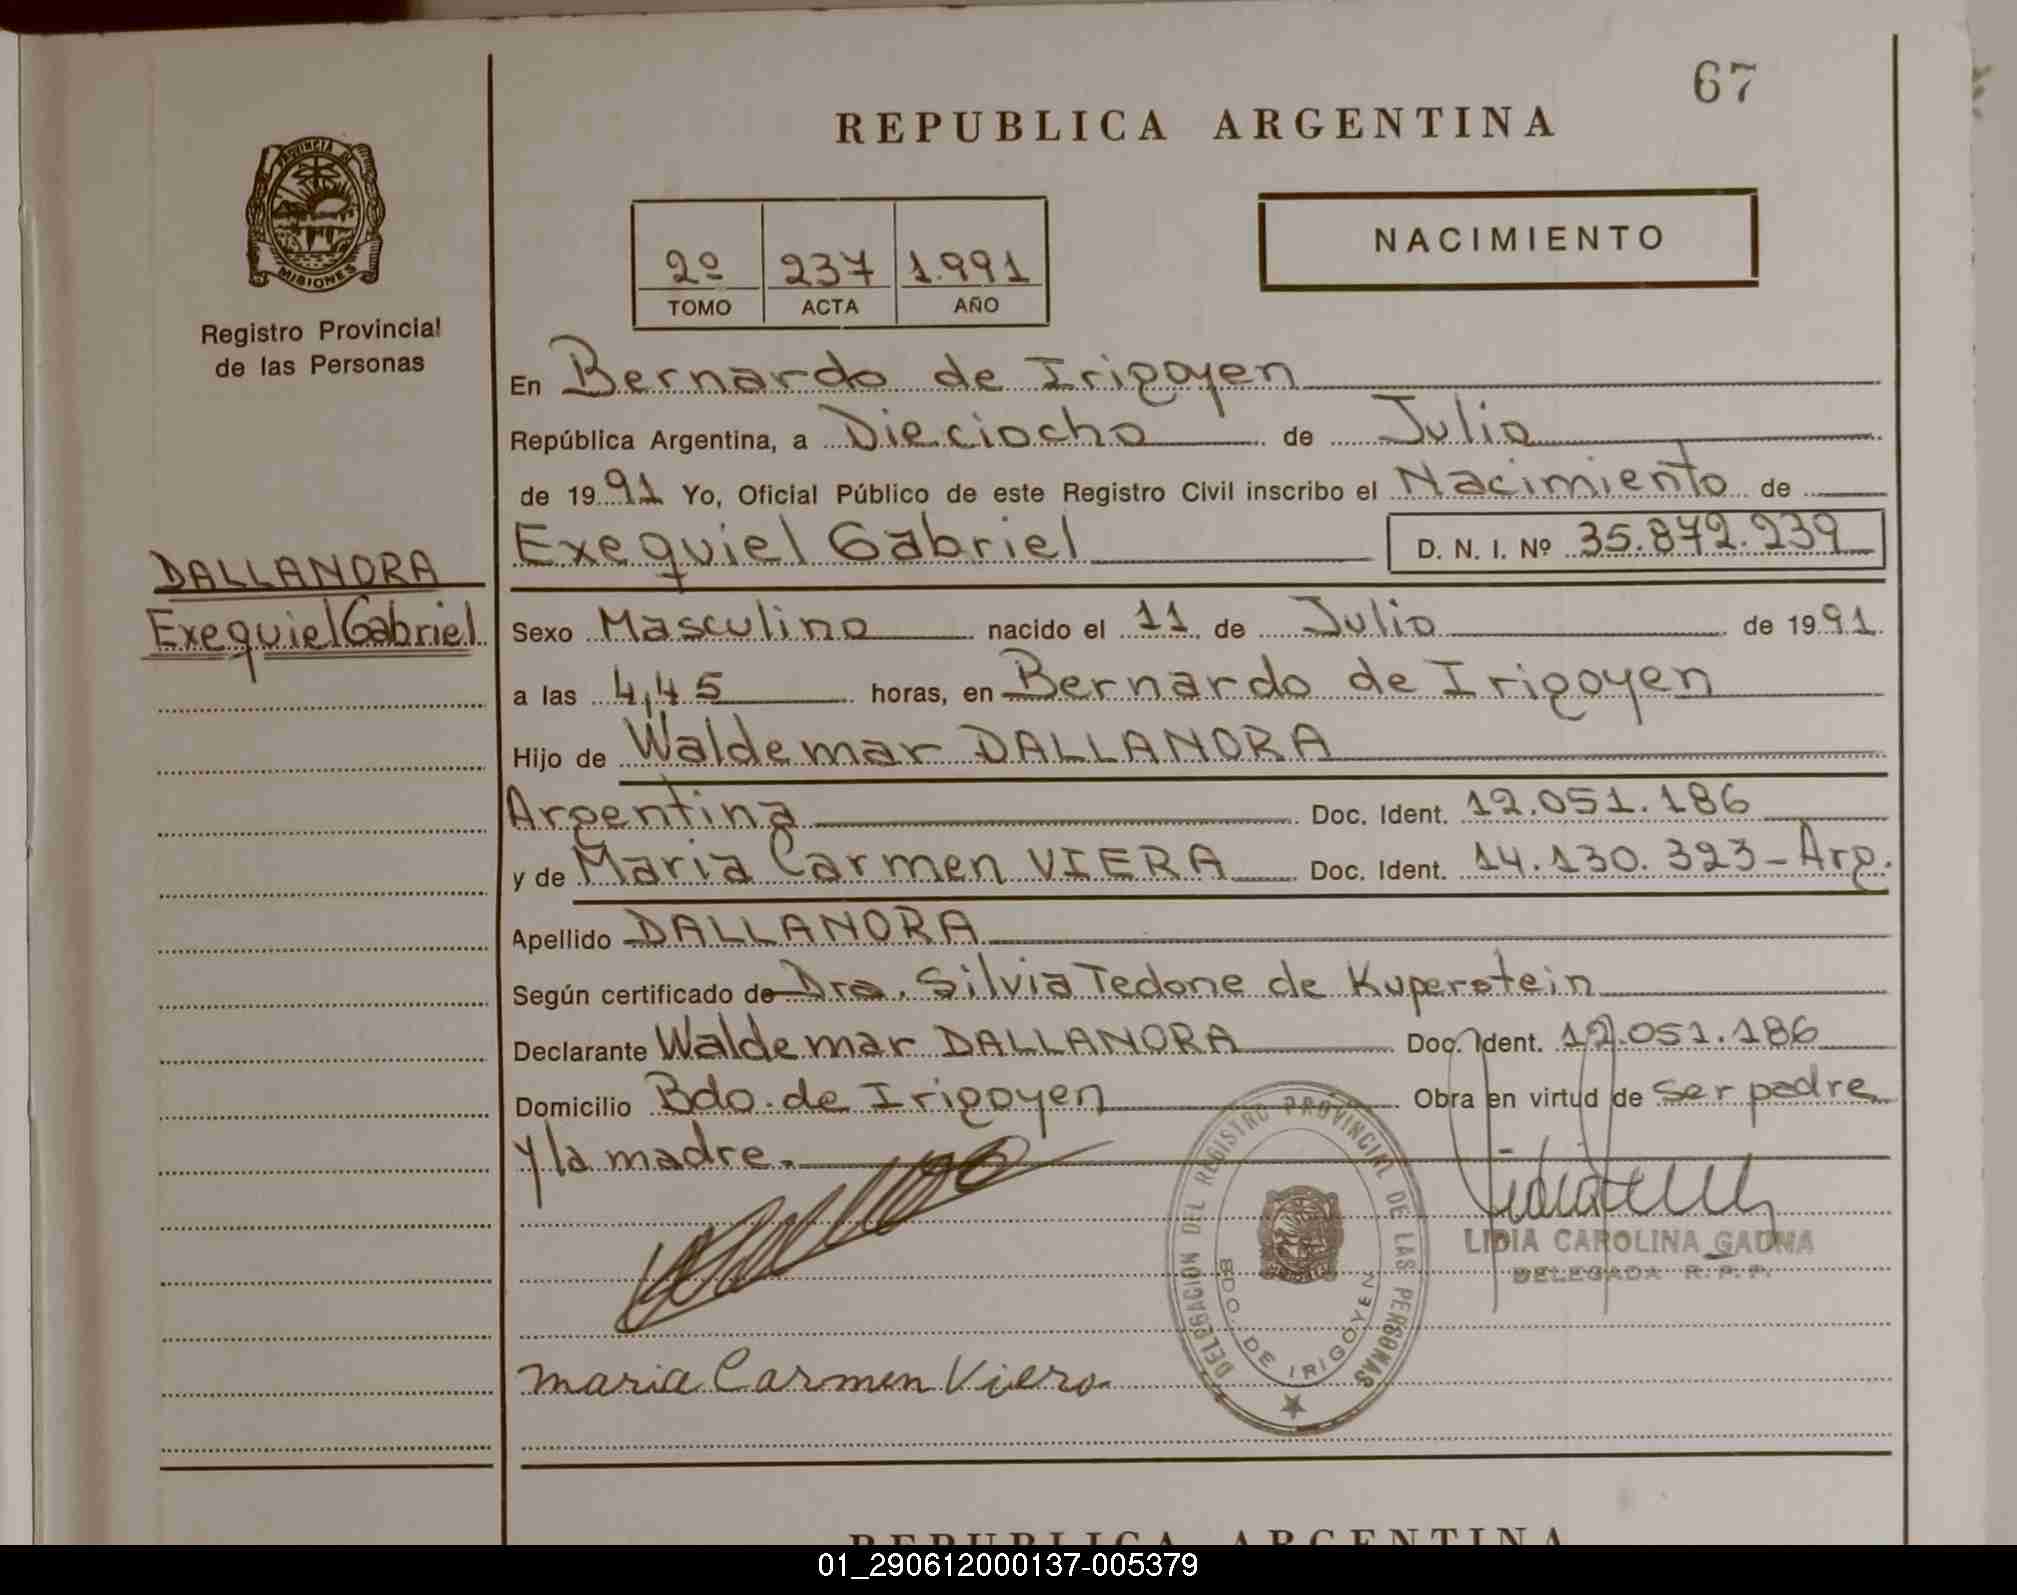 67
REPUBLICA ARGENTINA
PROVINCIA DE
MISIONES
Registro Provincial
de las Personas
2º 237 1.991
TOMO ACTA AÑO
NACIMIENTO
En Bernardo de Irigoyen
República Argentina, a Dieciocho de Julio
de 1991 Yo, Oficial Público de este Registro Civil inscribo el Nacimiento de
Exequiel Gabriel D. N. I. Nº 35.872.239
DALLANORA
Exequiel Gabriel
Sexo Masculino nacido el 11 de Julio de 1991
a las 4,45 horas, en Bernardo de Irigoyen
Hijo de Waldemar DALLANORA
Argentina Doc. Ident. 12.051.186
y de Maria Carmen VIERA Doc. Ident. 14.130.323-Arg.
Apellido DALLANORA
Según certificado de Dra. Silvia Tedone de Kuperstein
Declarante Waldemar DALLANORA Doc. Ident. 12.051.186
Domicilio Bdo. de Irigoyen Obra en virtud de ser padre
y la madre.
DELEGACION DEL REGISTRO PROVINCIAL DE LAS PERSONAS
BDO. DE IRIGOYEN
LIDIA CAROLINA GAUNA
DELEGADA R.P.P.
Maria Carmen Viera
REPUBLICA ARGENTINA
01_290612000137-005379